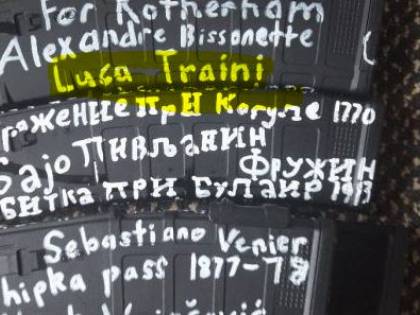 For Rotherham
Alexandre Bissonette
Luca Traini
ражение при Кагуле 1770
Бајо Пивљанин
Фружин
битка при Булаир 1913
Sebastiano Venier
hipka pass 1877-78